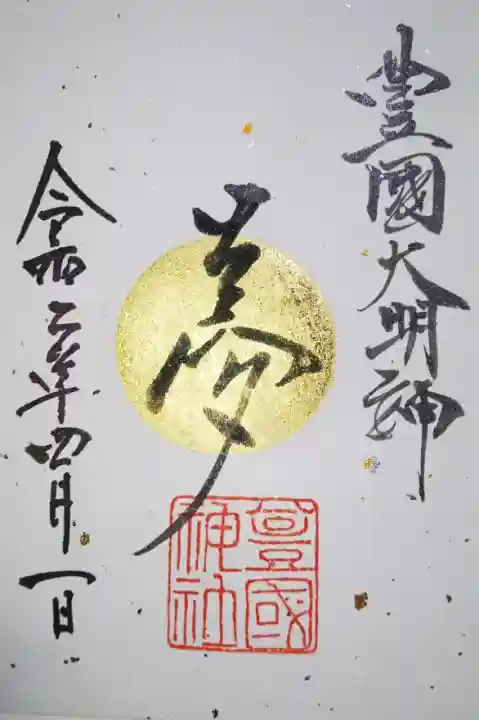 豊國大明神
夢
令和二年四月一日
豊國
神社